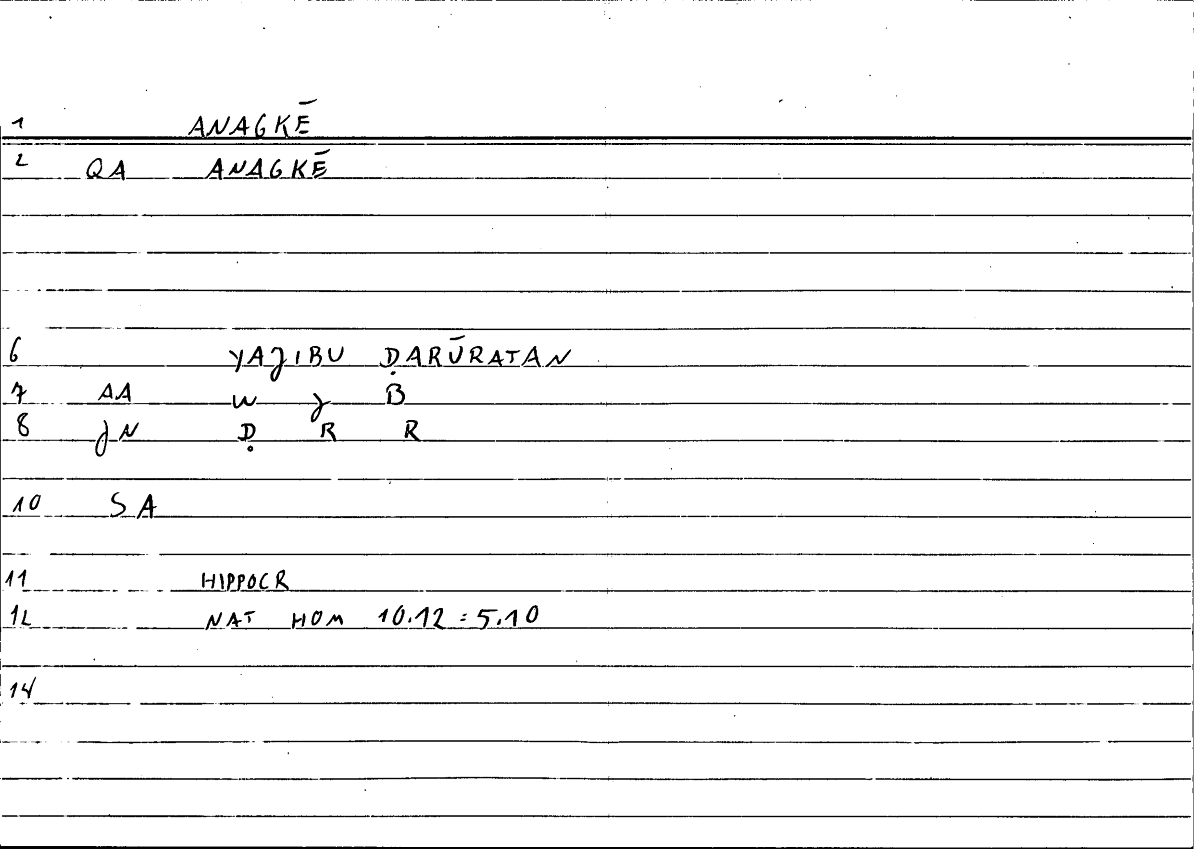 1 ANAGKĒ
2 QA ANAGKĒ
6 YAJIBU ḌARŪRATAN
7 AA W J B
8 JN Ḍ R R
10 SA
11 HIPPOCR
12 NAT HOM 10.12 = 5.10
14